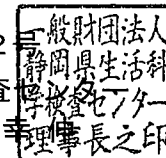 一般財団法人
静岡県生活科
学検査センター
理事長之印